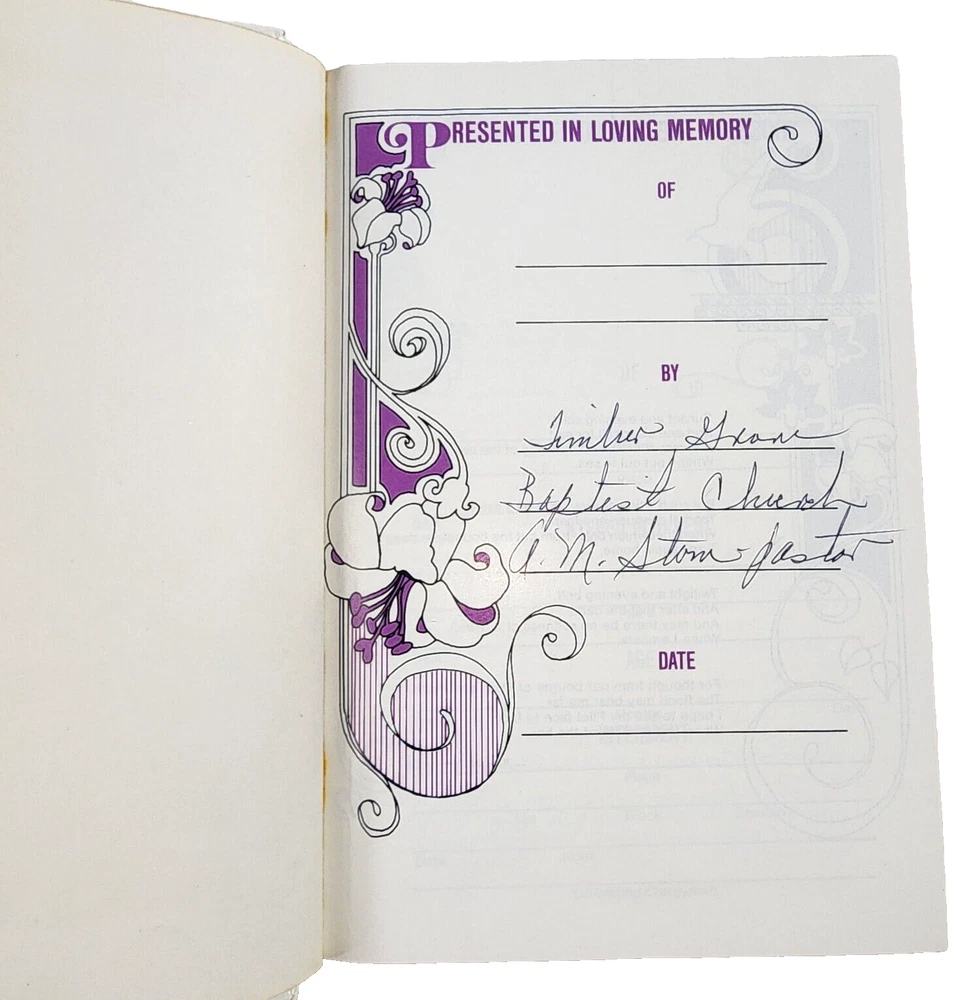 PRESENTED IN LOVING MEMORY
OF
BY
Timber Grove
Baptist Church
A. M. Stone - pastor
DATE